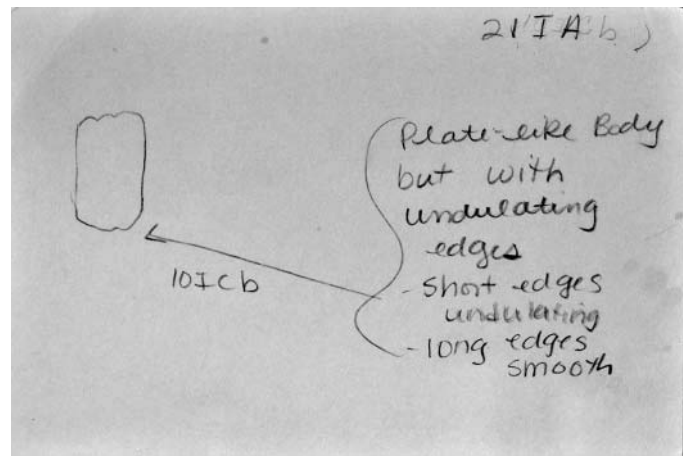 21IAb)
Plate-like Body
but with
undulating
edges
- Short edges
undulating
- long edges
smooth
10ICb